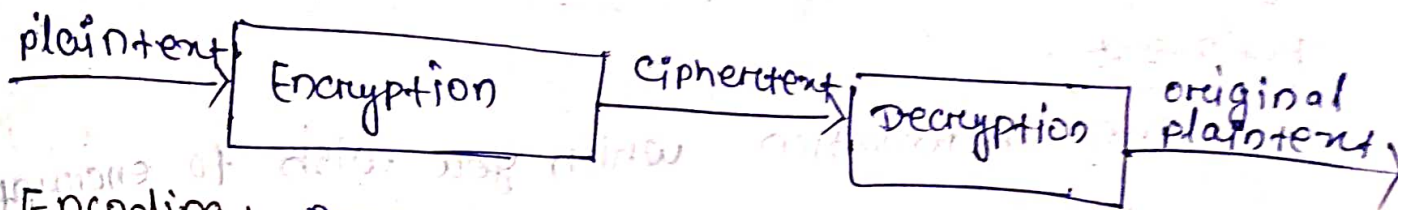 plaintext
Encryption
Ciphertext
Decryption
original
plaintext
Encoding